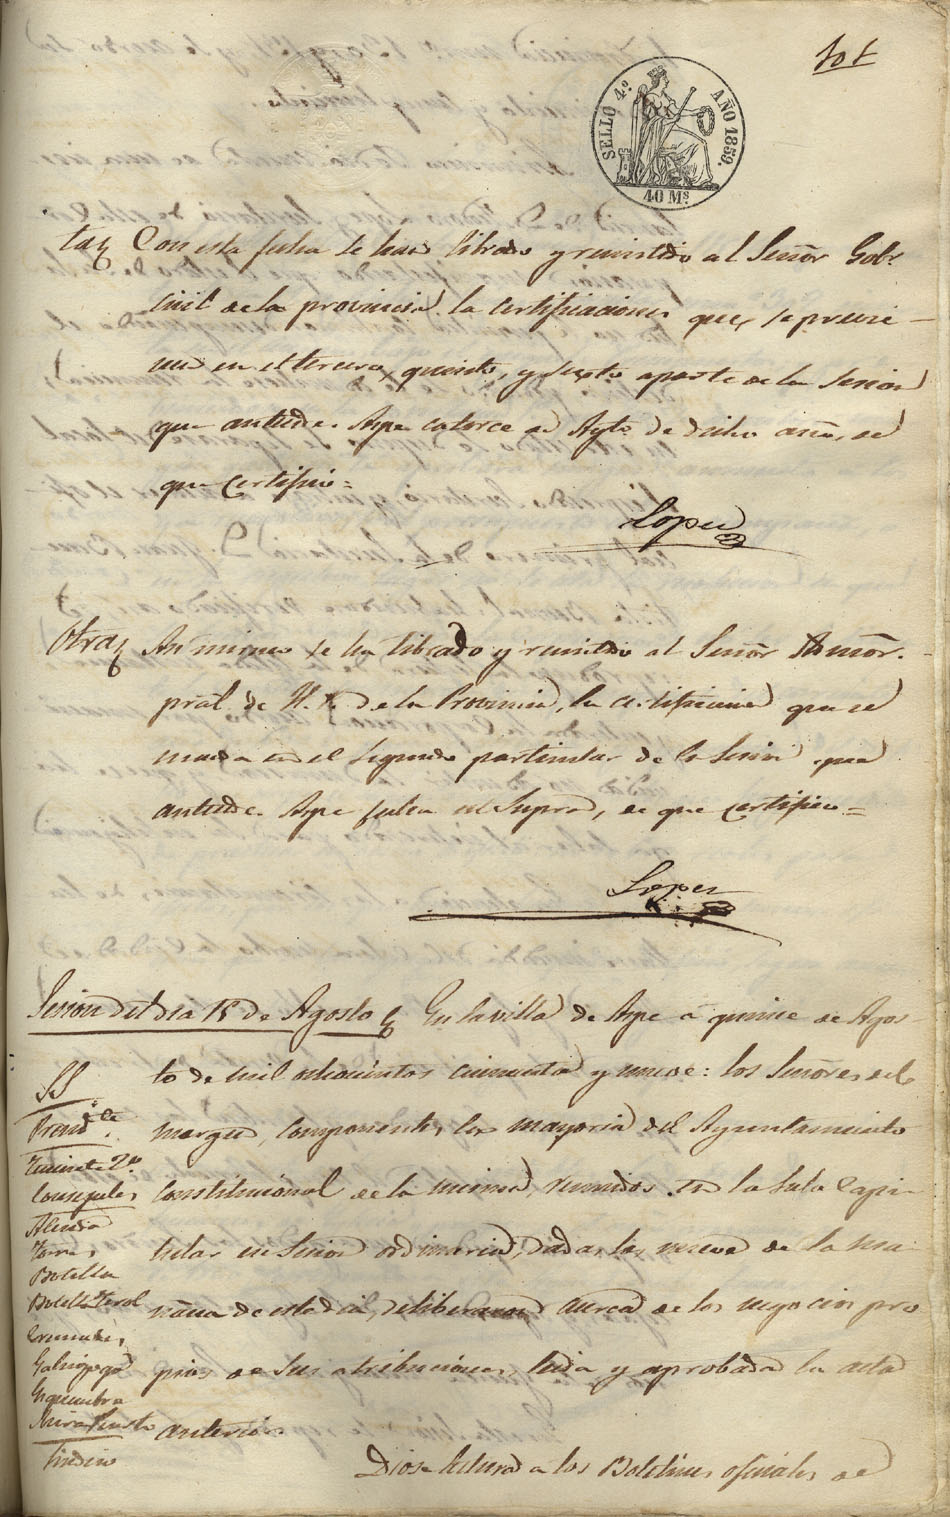 101
SELLO 4.º AÑO 1859.
40 Ms
Con esta fecha se han librado y remitido al Señor Gobr.
Civil de la provincia las certificaciones que se previe-
nen en el tercero, quinto, y sexto aparte de la Sesion
que antecede. Aspe catorce de Agto. de dicho año, de
que certifico =
Lopez
Otra Asi mismo se ha librado y remitido al Señor Admor.
pral. de H. P. de la Provincia, la certificacion que se
manda en el segundo particular de la Sesion que
antecede. Aspe fecha ut Supra, de que certifico =
Lopez
Sesion del dia 15 de Agosto En la villa de Aspe á quince de Agos-
to de mil ochocientos cincuenta y nueve: los Señores del
margen, componentes la mayoria del Ayuntamiento
constitucional de la misma, reunidos en la Sala Capi-
tular en Sesion ordinaria, dadas las nueve de la ma-
ñana de este dia, deliberaron acerca de los negocios pro-
pios de sus atribuciones, leida y aprobada la acta
anterior.
Diose lectura a los Boletines oficiales de
SS
Presidte.
Teniente 2º
Concejales
Almodia
Torres
Botella
Botella Terol
Cremades
Galinsoga
Mira
Sindico